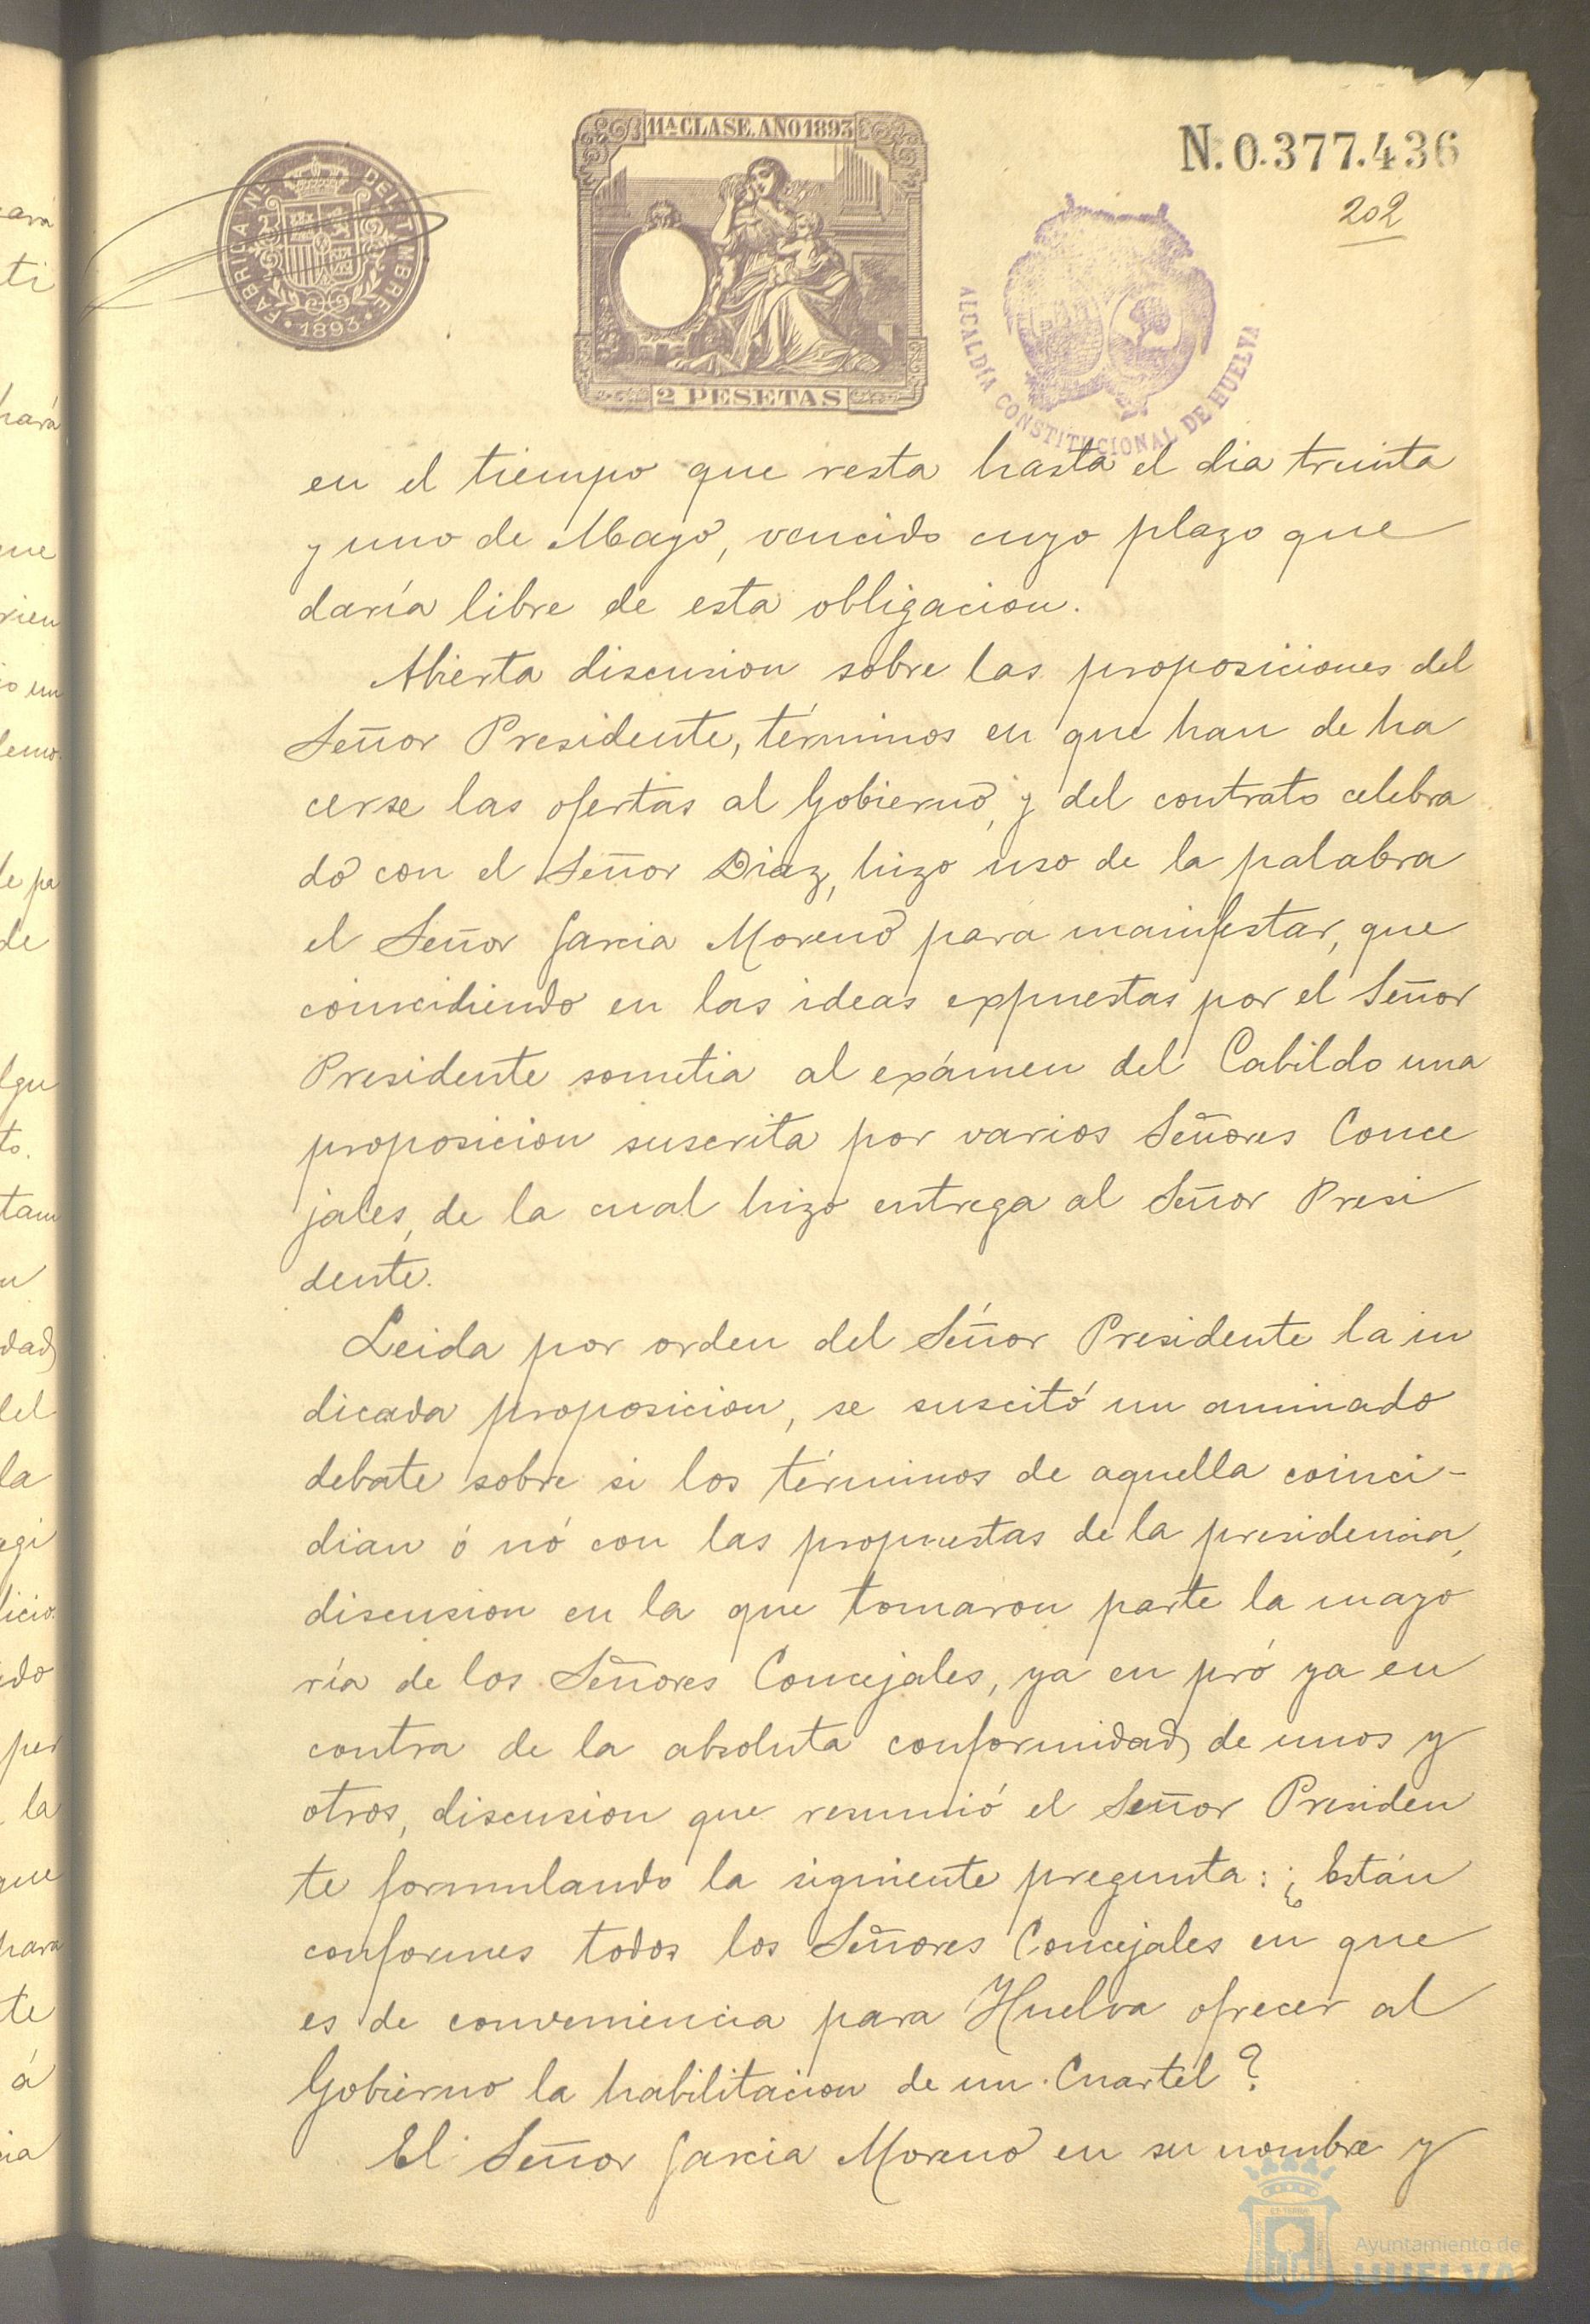 11ª CLASE. AÑO 1893
N. 0.377.436
202
FABRICA NAL DEL TIMBRE
1893
2 PESETAS
ALCALDÍA CONSTITUCIONAL DE HUELVA
en el tiempo que resta hasta el dia treinta
y uno de Mayo, vencido cuyo plazo que
daría libre de esta obligacion.
Abierta discusion sobre las proposiciones del
Señor Presidente, términos en que han de ha
cerse las ofertas al Gobierno, y del contrato celebra
do con el Señor Diaz, hizo uso de la palabra
el Señor Garcia Moreno para manifestar, que
coincidiendo en las ideas expuestas por el Señor
Presidente sometia al exámen del Cabildo una
proposicion suscrita por varios Señores Conce
jales, de la cual hizo entrega al Señor Presi
dente.
Leida por orden del Señor Presidente la in
dicada proposicion, se suscitó un animado
debate sobre si los términos de aquella coinci-
dian ó nó con las propuestas de la presidencia,
discusion en la que tomaron parte la mayo
ría de los Señores Concejales, ya en pró ya en
contra de la absoluta conformidad de unos y
otros, discusion que resumió el Señor Presiden
te formulando la siguiente pregunta: ¿Están
conformes todos los Señores Concejales en que
es de conveniencia para Huelva ofrecer al
Gobierno la habilitacion de un Cuartel?
El Señor Garcia Moreno en su nombre y
Ayuntamiento de
HUELVA